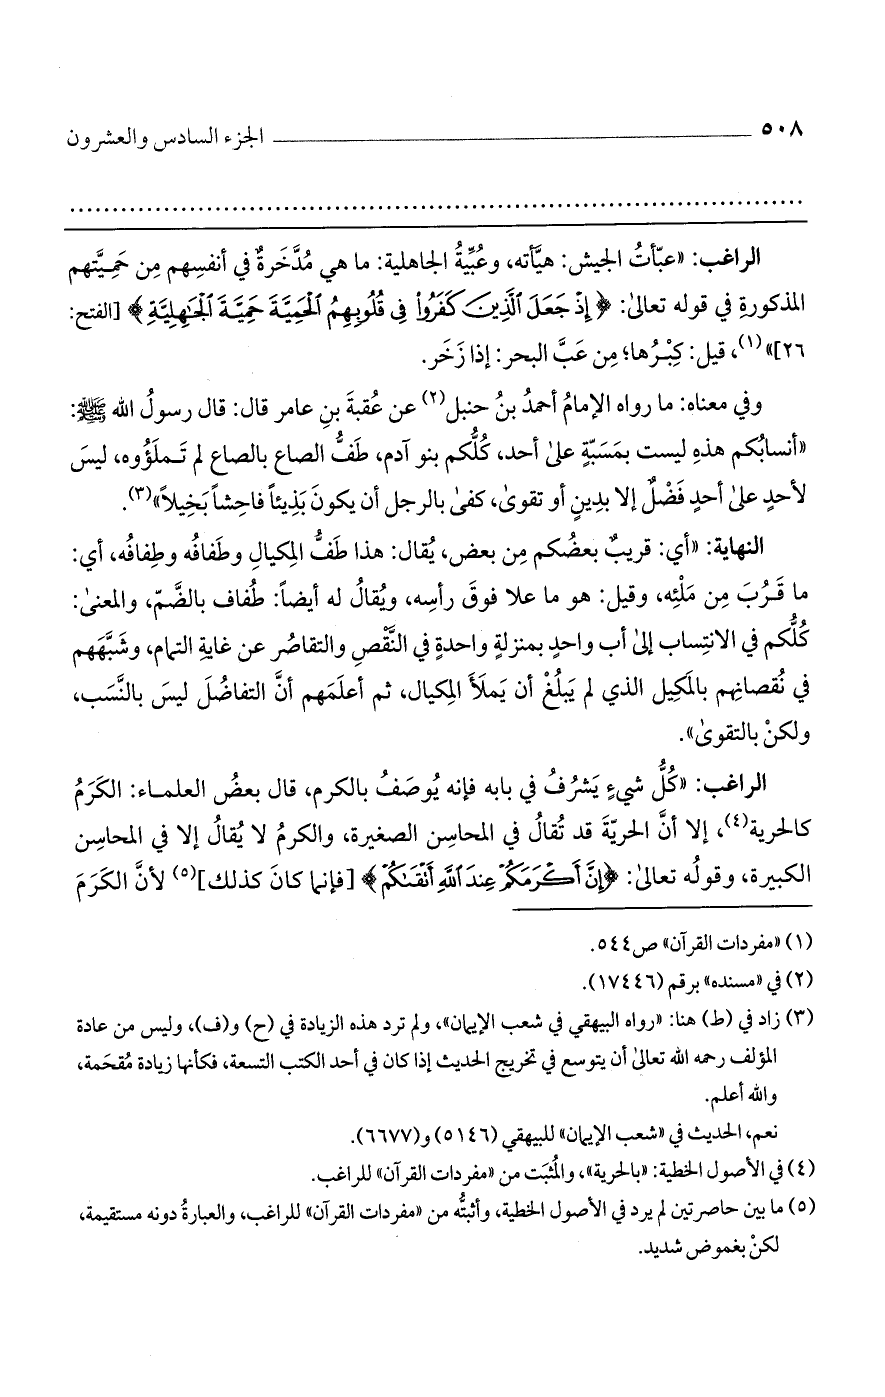 ٥٠٨ ـــــــــ الجزء السادس والعشرون
................................................................
الراغب: «عبّأتُ الجيش: هيَّأته، وعُبِّيةُ الجاهلية: ما هي مُدَّخَرةٌ في أنفسِهم مِن حَمِيَّتهم
المذكورةِ في قوله تعالىٰ: ﴿إِذْ جَعَلَ ٱلَّذِينَ كَفَرُوا۟ فِى قُلُوبِهِمُ ٱلْحَمِيَّةَ حَمِيَّةَ ٱلْجَـٰهِلِيَّةِ﴾ [الفتح:
٢٦]»(١)، قيل: كِبْرُها؛ مِن عَبَّ البحر: إذا زَخَر.
وفي معناه: ما رواه الإمامُ أحمدُ بنُ حنبل(٢) عن عُقبةَ بنِ عامر قال: قال رسولُ الله ﷺ:
«أنسابُكم هذهِ ليست بمَسَبّةٍ علىٰ أحد، كُلُّكم بنو آدم، طَفُّ الصاع بالصاع لم تَملَؤُوه، ليسَ
لأحدٍ علىٰ أحدٍ فَضْلٌ إلا بدِينٍ أو تقوىٰ، كفىٰ بالرجل أن يكونَ بَذِيئاً فاحِشاً بَخِيلاً»(٣).
النهاية: «أي: قريبٌ بعضُكم مِن بعض، يُقال: هذا طَفُّ المِكيالِ وطَفافُه وطِفافُه، أي:
ما قَرُبَ مِن مَلْئِه، وقيل: هو ما علا فوقَ رأسِه، ويُقالُ له أيضاً: طُفاف بالضَّمّ، والمعنىٰ:
كُلُّكم في الانتِساب إلىٰ أب واحدٍ بمنزلةٍ واحدةٍ في النَّقْصِ والتقاصُر عن غايةِ التمام، وشَبَّهَهم
في نُقصانِهم بالمَكِيل الذي لم يَبلُغْ أن يَملَأَ المِكيال، ثم أعلَمَهم أنَّ التفاضُلَ ليسَ بالنَّسَب،
ولكنْ بالتقوىٰ».
الراغب: «كُلُّ شيءٍ يَشرُفُ في بابه فإنه يُوصَفُ بالكرم، قال بعضُ العلماء: الكَرَمُ
كالحرية(٤)، إلا أنَّ الحريّةَ قد تُقالُ في المحاسِن الصغيرة، والكرمُ لا يُقالُ إلا في المحاسن
الكبيرة، وقولُه تعالىٰ: ﴿إِنَّ أَكْرَمَكُمْ عِندَ ٱللَّهِ أَتْقَىٰكُمْ﴾ [فإنما كانَ كذلك](٥) لأنَّ الكَرَمَ
(١) «مفردات القرآن» ص٥٤٤.
(٢) في «مسنده» برقم (١٧٤٤٦).
(٣) زاد في (ط) هنا: «رواه البيهقي في شعب الإيمان»، ولم ترد هذه الزيادة في (ح) و(ف)، وليس من عادة
المؤلف رحمه الله تعالىٰ أن يتوسع في تخريج الحديث إذا كان في أحد الكتب التسعة، فكأنها زيادة مُقحَمة،
والله أعلم.
نعم، الحديث في «شعب الإيمان» للبيهقي (٥١٤٦) و(٦٦٧٧).
(٤) في الأصول الخطية: «بالحرية»، والمُثبَت من «مفردات القرآن» للراغب.
(٥) ما بين حاصرتين لم يرد في الأصول الخطية، وأثبتُّه من «مفردات القرآن» للراغب، والعبارةُ دونه مستقيمة،
لكنْ بغموض شديد.